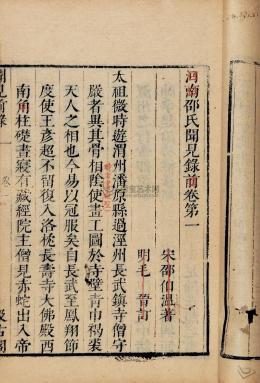 河南邵氏聞見錄前卷第一
宋邵伯溫著
明毛晉訂
太祖微時遊渭州潘原縣過涇州長武鎮寺僧守
嚴者異其骨相陰使畫工圖於寺壁青巾褐裘
天人之相也今易以冠服矣自長武至鳳翔節
度使王彥超不留復入洛枕長壽寺大佛殿西
南角柱礎晝寢有藏經院主僧見赤蛇出入帝
聞見前錄
卷一
汲古閣